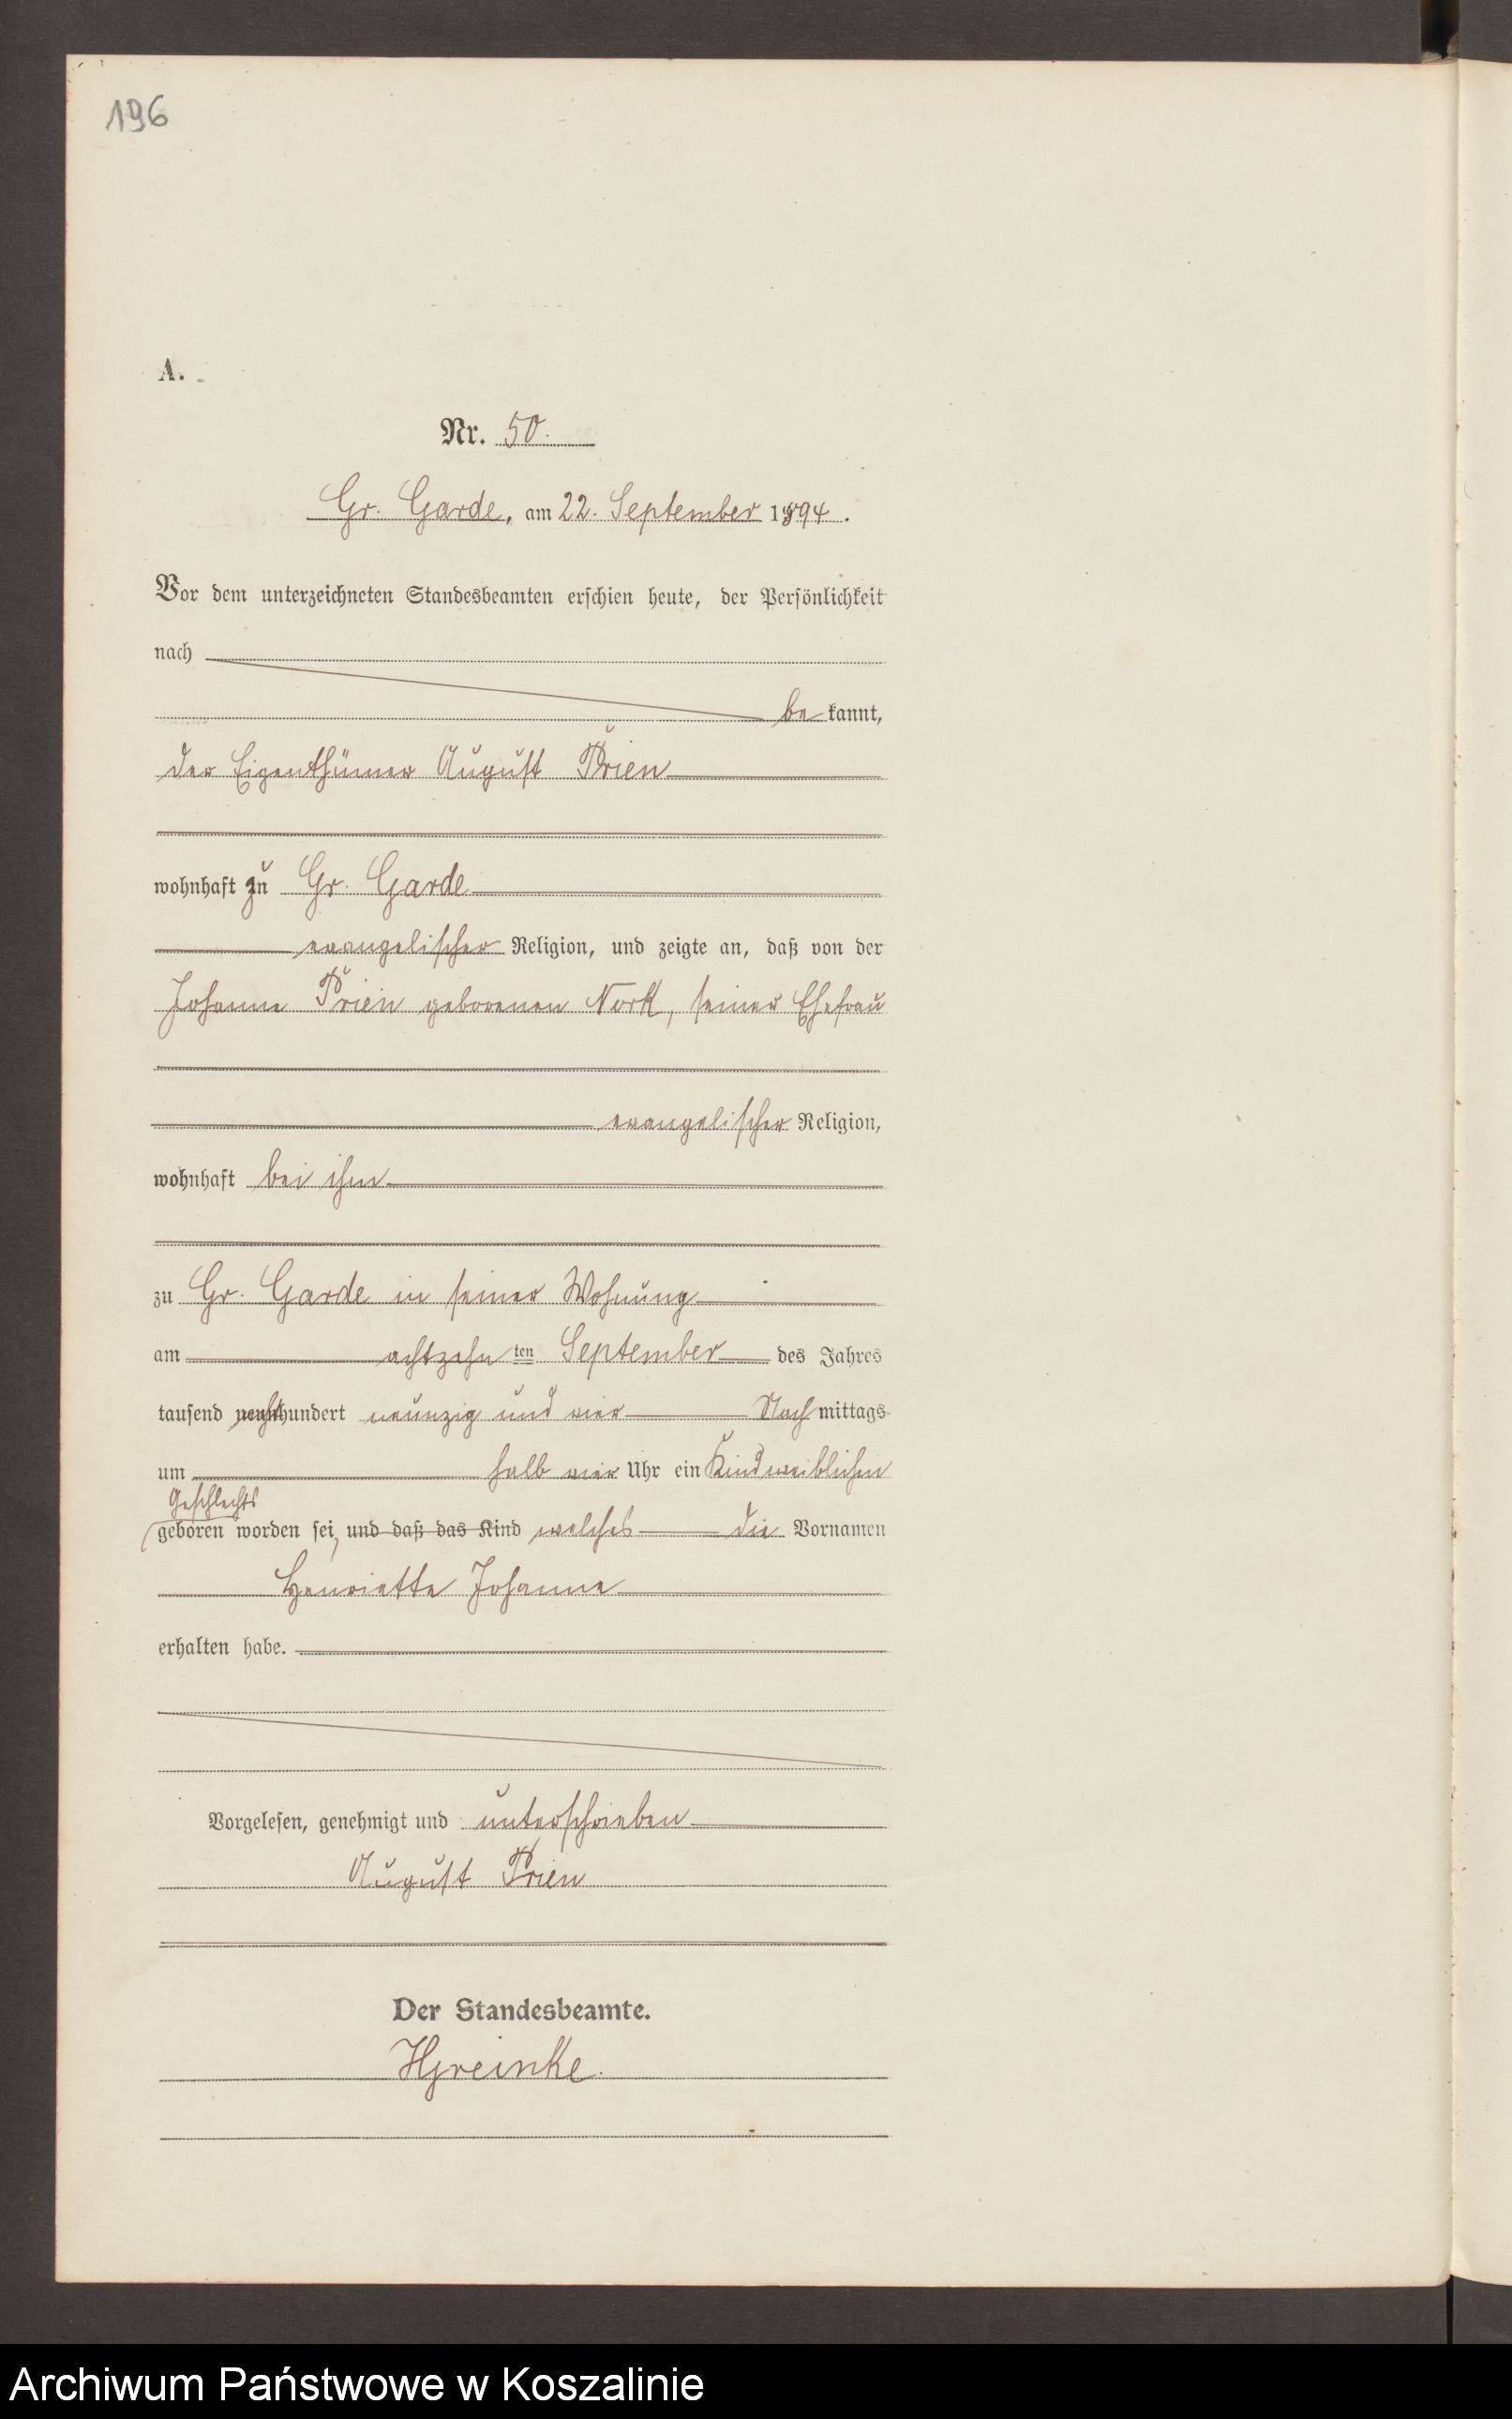 196
A.
Nr. 50.
Gr. Garde, am 22. September 1894.
Vor dem unterzeichneten Standesbeamten erschien heute, der Persönlichkeit
nach
be kannt,
der Eigenthümer August Prien
wohnhaft zu Gr. Garde
evangelischer Religion, und zeigte an, daß von der
Johanne Prien geborenen Nork, seiner Ehefrau
evangelischer Religion,
wohnhaft bei ihm
zu Gr. Garde in seiner Wohnung
am achtzehn ten September des Jahres
tausend achthundert neunzig und vier Nach mittags
um halb vier Uhr ein Kind weiblichen
Geschlechts
geboren worden sei, und daß das Kind welches die Vornamen
Henriette Johanne
erhalten habe.
Vorgelesen, genehmigt und unterschrieben
August Prien
Der Standesbeamte.
Archiwum Państwowe w Koszalinie